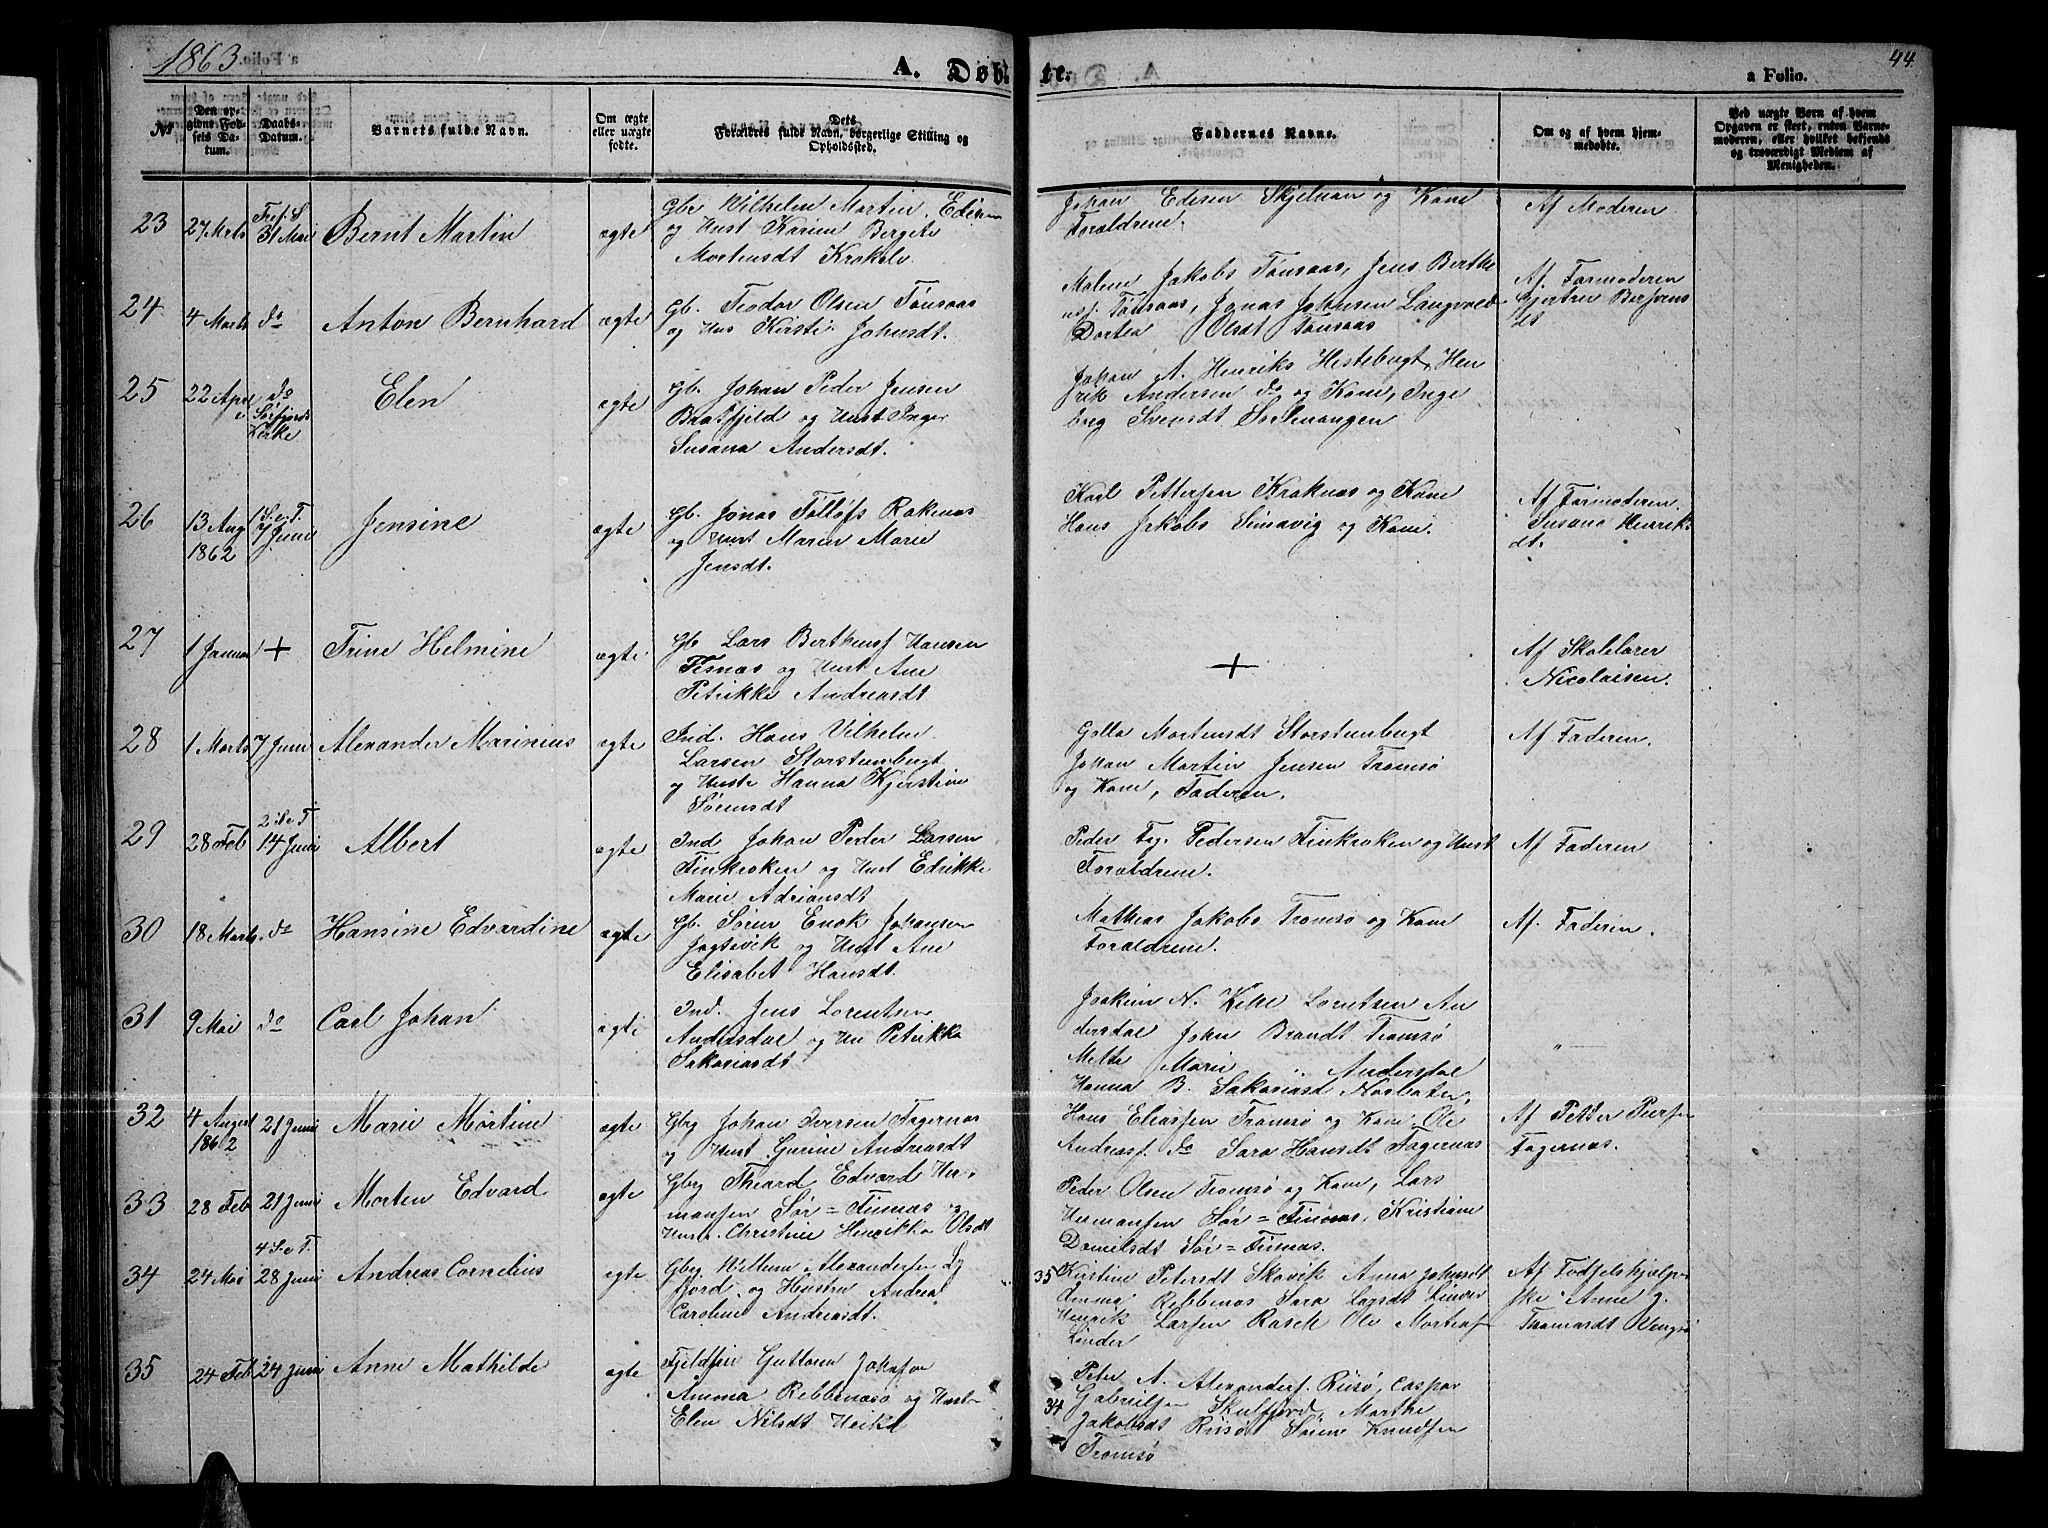 1863.
A. Døbte.
44
a Folio.
№
Den opgivne Fødsels Datum.
Daabs-Datum.
Barnets fulde Navn.
Om ægte eller uægte fødte.
Dets Forældres fulde Navn, borgerlige Stilling og Opholdssted.
Faddernes Navne.
Om og af hvem hjemmedøbte.
Ved uægte Børn af hvem Opgaven er skeet, enten Barnemoderen, eller hvilket bekjendt og troværdigt Medlem af Menigheden.
23
27 Marts
31 Mai
Bernt Martin
ægte
Gbr Vilhelm Martin Edisen
og Hust Karen Bergete
Mortensdt Krokelv
Johan Edisen Skjelnan og Kone
Forældrene.
Af Moderen
24
4 Marts
do
Anton Bernhard
ægte
Gb. Teodor Olsen Tønsaas
og Hus Kirsti Johnsdt.
Malene Jakobs Tønsaas, Jens Berthe
usf. Tønsaas, Jonas Johnsen
Dortea Olsdt Tønsaas
Af Farmoderen
25
22 April
do
Sørfjords
Kirke
Elen
ægte
Gb. Johan Peder Jensen
Bratfjeld og Hust Inger
Susana Andersdt.
Johan A. Henriks Hestebugt, Hen
rik Andersen do og Kone, Inge
borg Svensdt
26
13 Aug
1862
1 S. e. T.
7 Juni
Jensine
ægte
Gb. Jonas Tølløfs Rakenæs
og Hust Maren Marie
Jensdt.
Karl Pettersen Kraknæs og Kone
Hans Jakobs Simavig og Kone.
Af Farmoderen
Susana Henriks
dt.
27
1 Januar
+
Trine Helmine
ægte
Gb Lars Bertheusf Hansen
Tisnæs og Hust Ane
Petrikke Andreasdt
+
Af Skolelærer
Nicolaisen.
28
1 Marts
7 Juni
Alexander Marinius
ægte
Ind. Hans Vilhelm
Larsen Storstenbugt
og Huste Hanna Kjerstine
Sørensdt
Golla Mortensdt Storstenbugt
Johan Martin Jensen Tromsø
og Kone, Faderen.
Af Faderen.
29
28 Feb
2 S e T
14 Juni
Albert
ægte
Ind Johan Peder Larsen
Finkroken og Hust Edrikke
Marie Adriansdt
Peder Pedersen Finkroken og Hust
Forældrene.
Af Faderen
30
18 Marts
do
Hansine Edvardine
ægte
Gb. Søren Enok Johansen
Jægtevik og Hust Ane
Elisabet Hansdt.
Mathias Jakobs Tromsø og Kone
Forældrene.
Af. Faderen.
31
9 Mai
do
Carl Johan
ægte
Ind. Jens Lorentsen
Andersdal og Hu Petrikka
Sakariasdt
Joakim N. Lorentsen An
dersdal John Brandt Tromsø
Mette Marie Andersdal
Hanna B. Sakariasd
" —
32
4 August
1862
21 Juni
Marie Mortine
ægte
Gbrg Johan Iversen Fagernæs
og Hust Gurine Andreasdt
Hans Eliassen Tromsø og Kone, Ole
Andreasf. do Sara Hansdt Fagernæs
Af Petter
Fagernæs.
33
28 Feb
21 Juni
Morten Edvard
ægte
Gbrg Theard Edvard Her-
mansen Sør=Tisnæs og
Hust. Christine Henrikka Olsdt
Peder Olsen Tromsø og Kone, Lars
Hermansen Sør=Tisnæs, Kristiane
Danielsdt Sør=Tisnæs.
34
24 Mai
4 S. e T.
28 Juni
Andreas Cornelius
ægte
Gbrg Willum Alexandersen
fjord og Hustru Andrea
Caroline Andreasdt.
35 Kirstine Petersdt Skavik Anna Johnsdt
Rebbenæs Sara Larsdt
Henrik Larsen Rasch Ole Mortensf
Af Fødselshjælper
ske Anne J.
35
24 Feb
24 Juni
Anne Mathilde
ægte
Fjeldfin Guttorm Johnsen
Rebbenæsø og Hust
Elen Nilsdt
Peter A. Alexandersf. Risø, Caspar
34 Gabrielsen Skulfjord, Marthe
Jakobsdt Risø Søren Knudsen
Tromsø